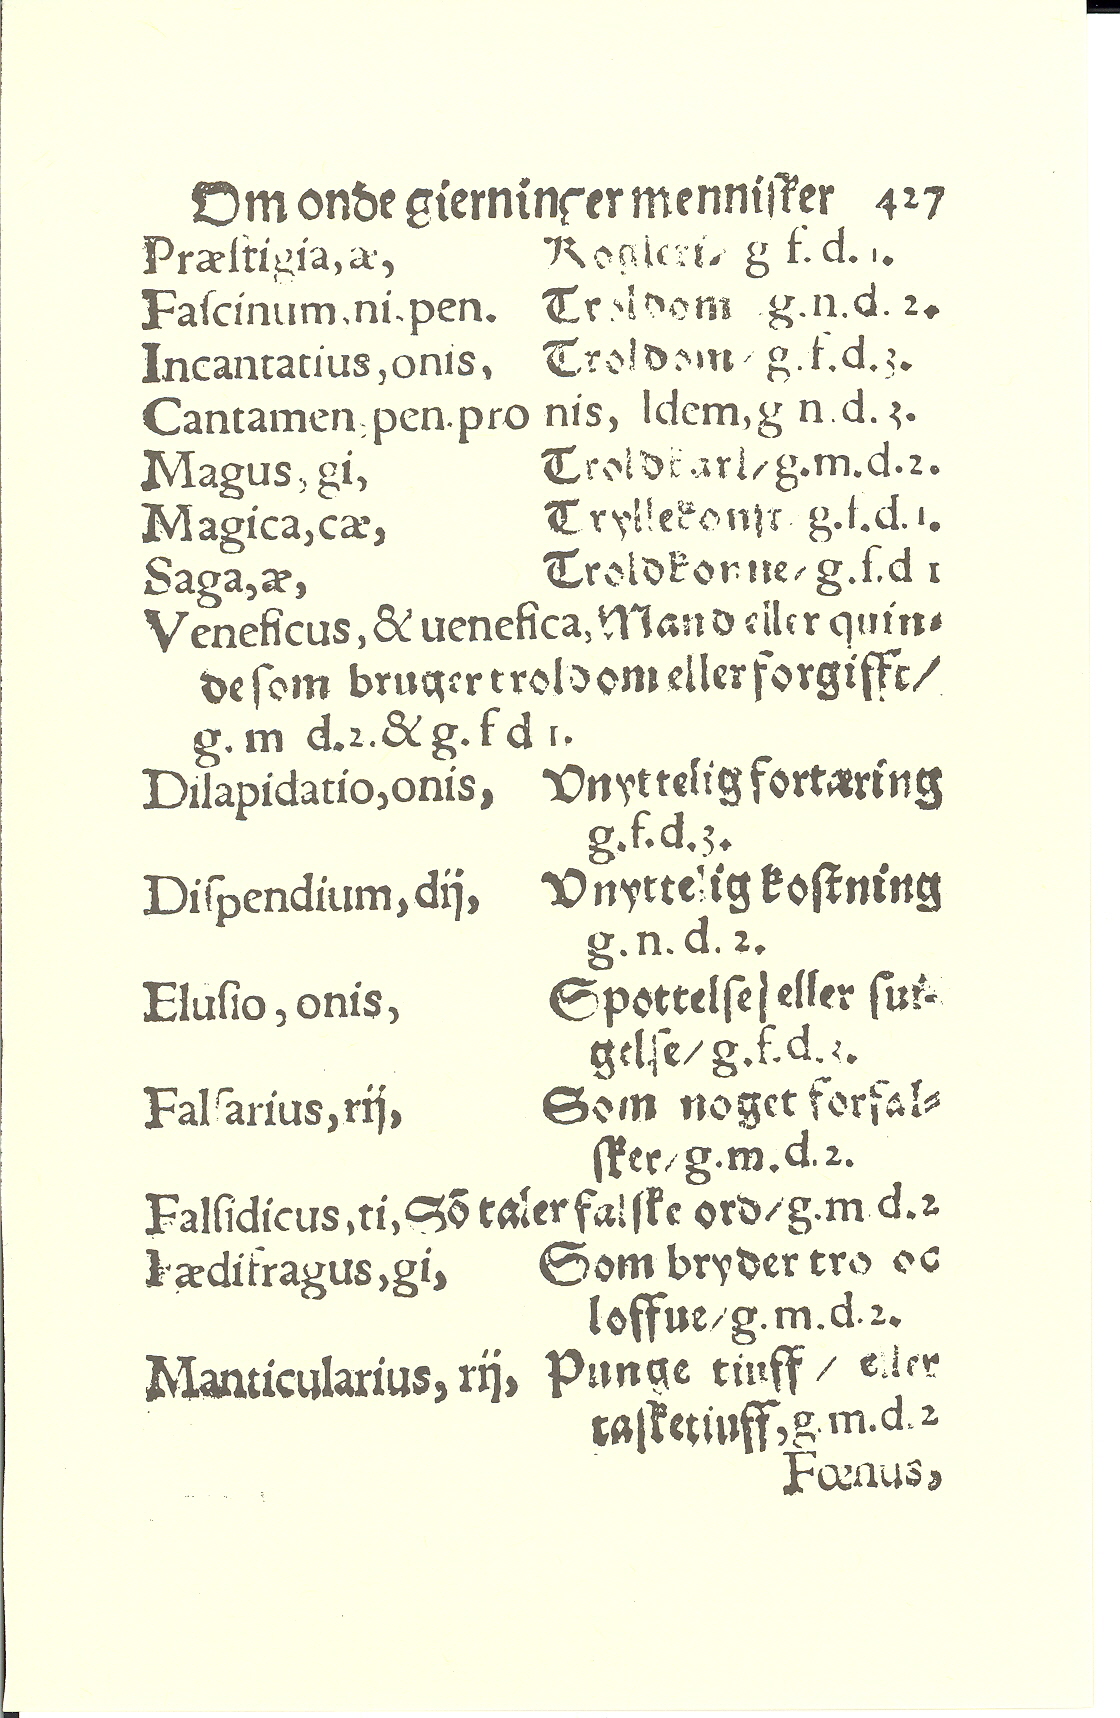 Om onde gierninger mennisker 427
Præſtigia, æ, Kogleri/ g f. d. 1.
Faſcinum, ni. pen. Troldom g. n. d. 2.
Incantatius, onis, Troldom/ g. f. d. 3.
Cantamen, pen. pro nis, Idem, g n. d. 3.
Magus, gi, Troldkarl/ g. m. d. 2.
Magica, cæ, Tryllekonſt g. f. d. 1.
Saga, æ, Troldkonne/ g. f. d 1
Veneficus, & uenefica, Mand eller quin-
de ſom bruger troldom eller forgifft/
g. m d. 2. & g. f d 1.
Dilapidatio, onis, Vnyttelig fortæring
g. f. d. 3.
Diſpendium, dij, Vnyttelig koſtning
g. n. d. 2.
Eluſio, onis, Spottelſe/ eller
gelſe/ g. f. d. 3.
Falſarius, rij, Som noget forfal-
ſker/ g. m. d. 2.
Falſidicus, ti, Sõ taler falſke ord/ g. m d. 2
Fædifragus, gi, Som bryder tro oc
loffue/ g. m. d. 2.
Manticularius, rij, Punge tiuff / eller
taſketiuff, g. m. d. 2
Fœnus,